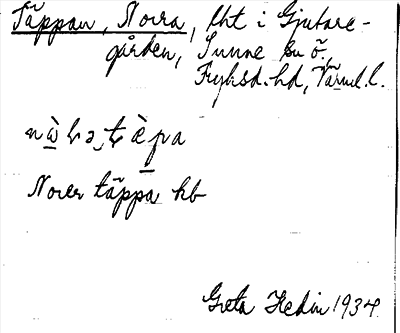 Täppan, Norra, lht i Gjutare-
gården, Sunne sn ö,
Fryksd. hd, Värml. l.
Norer täppa hb
Greta Hedin 1934.